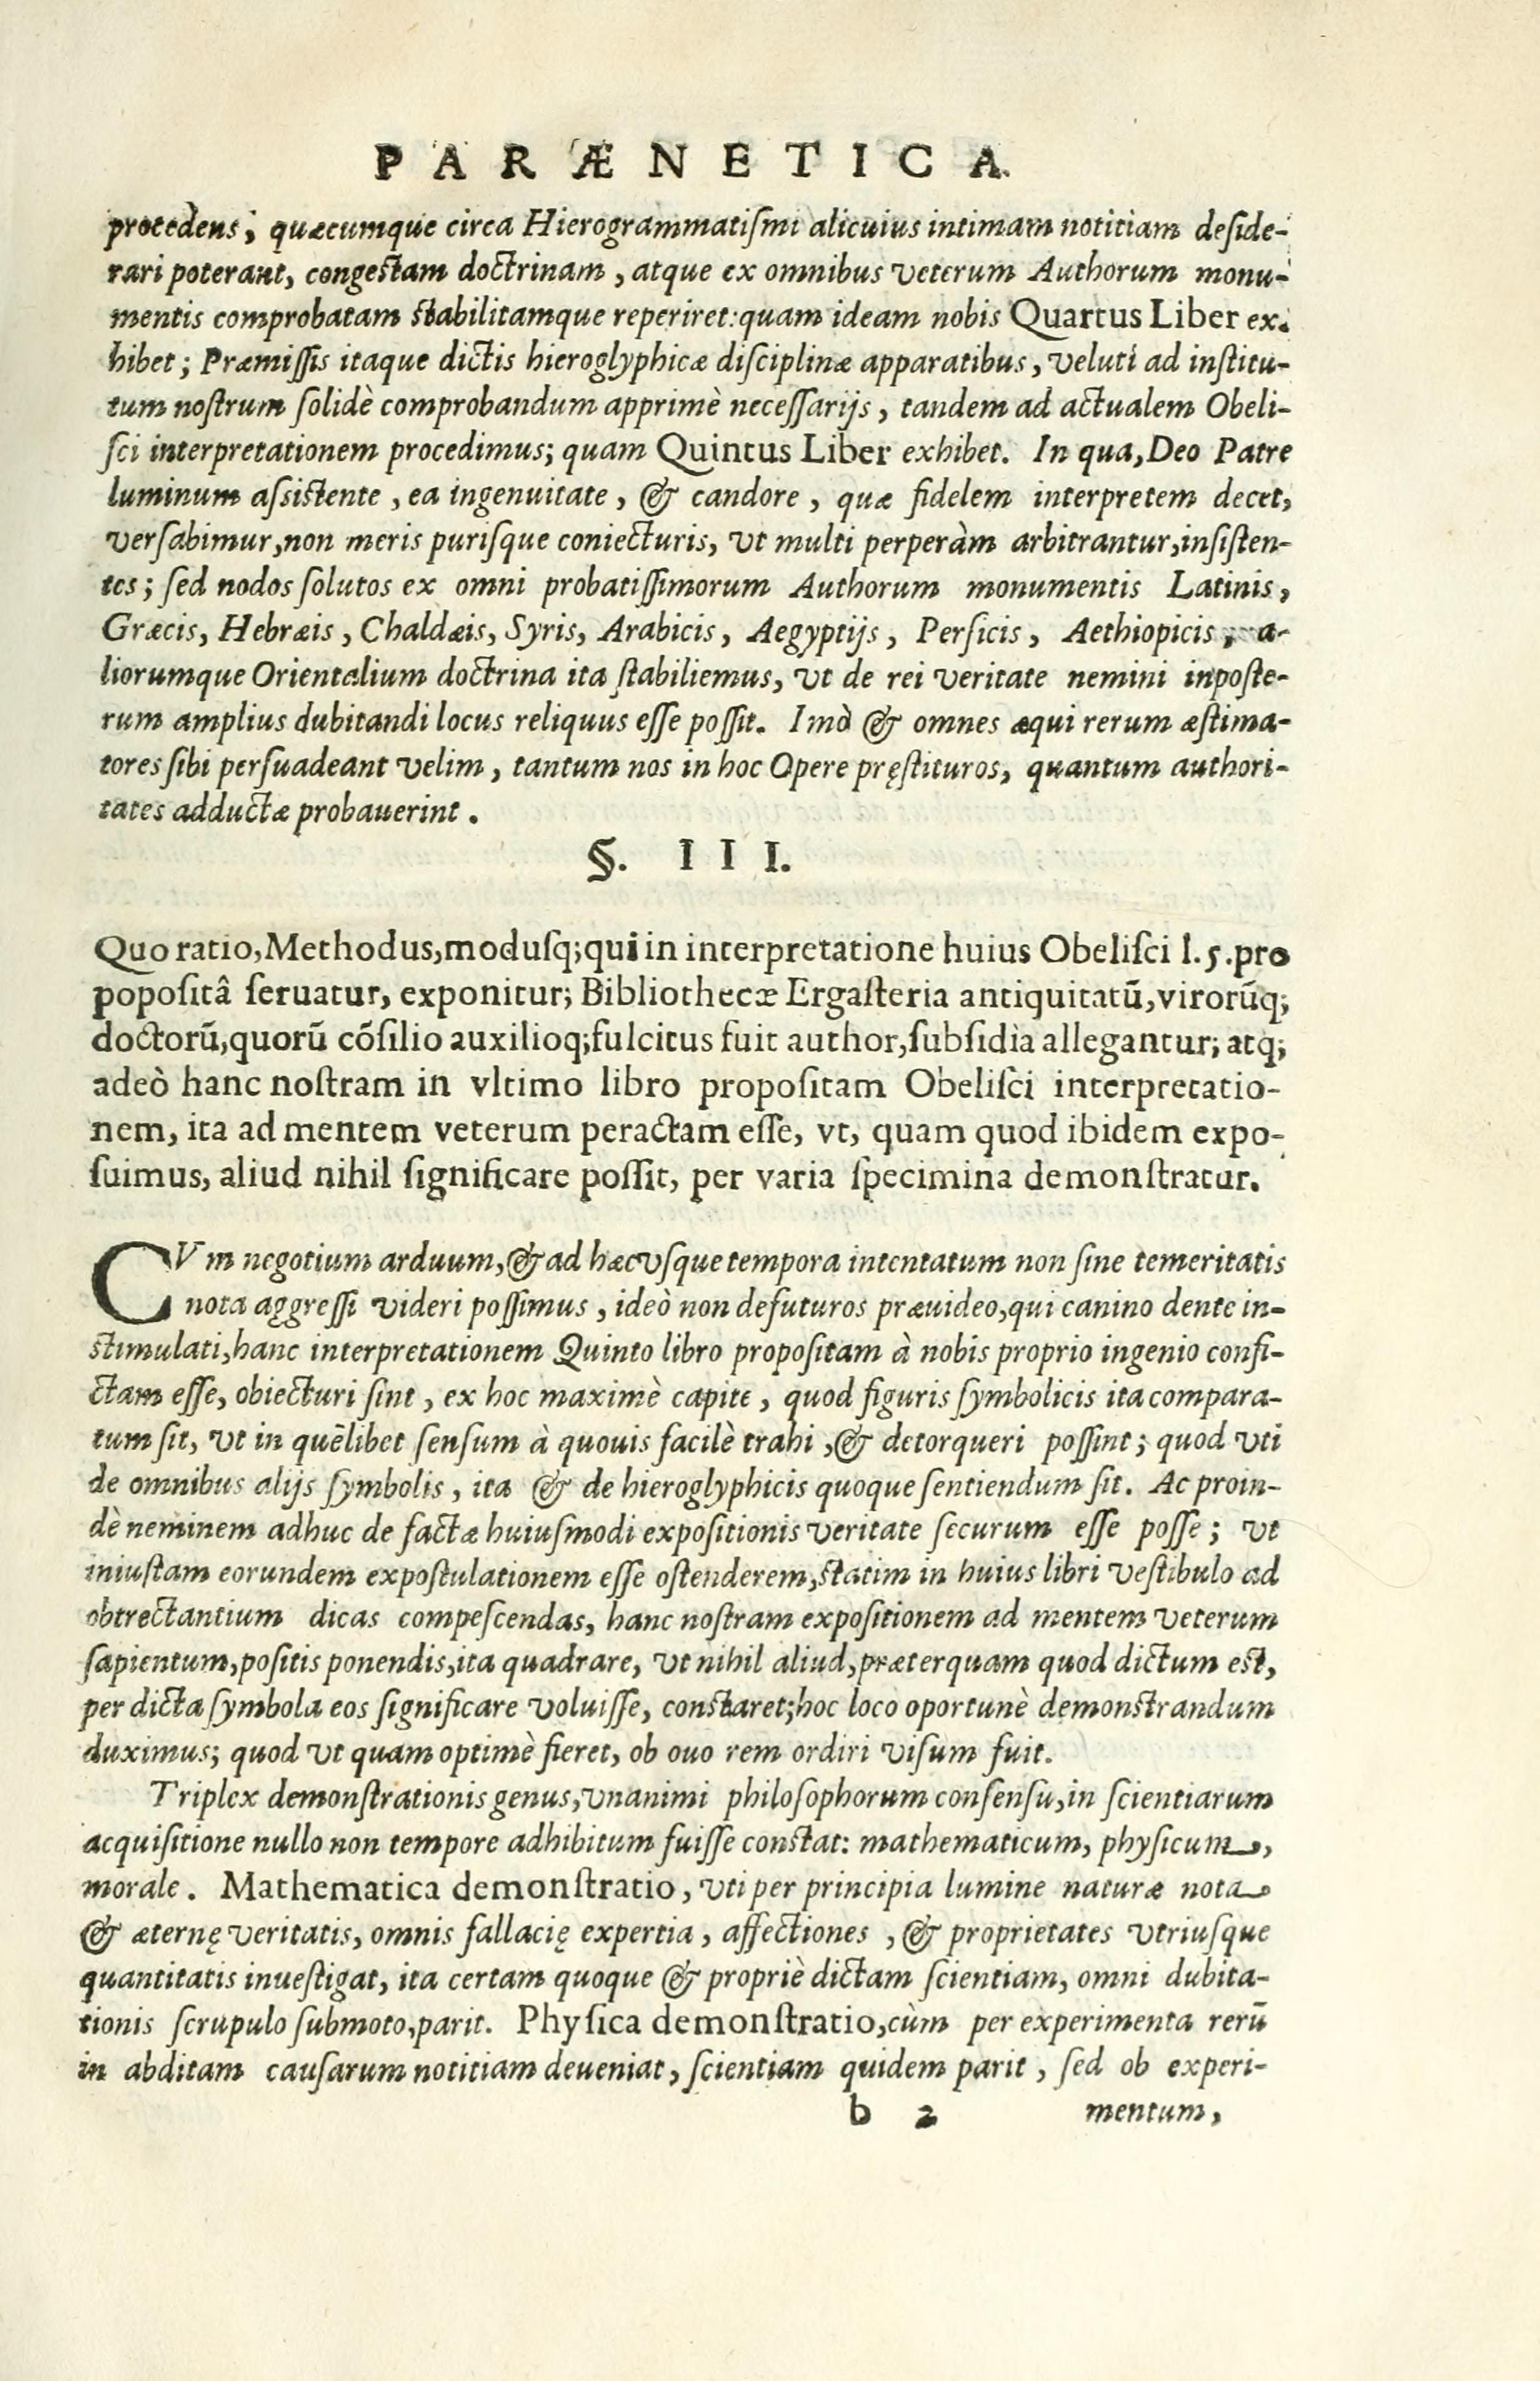 PARÆNETICA.
procedens; quæcumque circa Hierogrammatiſmi alicuius intimam notitiam deſide-
rari poterant, congeſtam doctrinam, atque ex omnibus veterum Authorum monu-
mentis comprobatam ſtabilitamque reperiret: quam ideam nobis Quartus Liber ex-
hibet; Præmiſſis itaque dictis hieroglyphicæ diſciplinæ apparatibus, veluti ad inſtitu-
tum noſtrum ſolidè comprobandum apprimè neceſſarijs, tandem ad actualem Obeli-
ſci interpretationem procedimus; quam Quintus Liber exhibet. In qua, Deo Patre
luminum aſsiſtente, ea ingenuitate, & candore, quæ fidelem interpretem decet,
verſabimur, non meris puriſque coniecturis, vt multi perperàm arbitrantur, inſiſten-
tes; ſed nodos ſolutos ex omni probatiſſimorum Authorum monumentis Latinis,
Græcis, Hebræis, Chaldæis, Syris, Arabicis, Aegyptijs, Perſicis, Aethiopicis, a-
liorumque Orientalium doctrina ita ſtabiliemus, vt de rei veritate nemini inpoſte-
rum amplius dubitandi locus reliquus eſſe poſſit. Imò & omnes æqui rerum æſtima-
tores ſibi perſuadeant velim, tantum nos in hoc Opere pręſtituros, quantum authori-
tates adductæ probauerint.
§. III.
Quo ratio, Methodus, moduſq; qui in interpretatione huius Obeliſci l. 5. pro
popoſitâ ſeruatur, exponitur; Bibliothecæ Ergaſteria antiquitatū, virorūq;
doctorū, quorū cōſilio auxilioq; fulcitus fuit author, ſubſidia allegantur; atq;
adeò hanc noſtram in vltimo libro propoſitam Obeliſci interpretatio-
nem, ita ad mentem veterum peractam eſſe, vt, quam quod ibidem expo-
ſuimus, aliud nihil ſignificare poſſit, per varia ſpecimina demonſtratur.
CVm negotium arduum, & ad hæc vſque tempora intentatum non ſine temeritatis
nota aggreſſi videri poſſimus, ideò non defuturos præuideo, qui canino dente in-
ſtimulati, hanc interpretationem Quinto libro propoſitam à nobis proprio ingenio confi-
ctam eſſe, obiecturi ſint, ex hoc maximè capite, quod figuris ſymbolicis ita compara-
tum ſit, vt in quēlibet ſenſum à quouis facilè trahi, & detorqueri poſſint; quod vti
de omnibus alijs ſymbolis, ita & de hieroglyphicis quoque ſentiendum ſit. Ac proin-
dè neminem adhuc de factæ huiuſmodi expoſitionis veritate ſecurum eſſe poſſe; vt
iniuſtam eorundem expoſtulationem eſſe oſtenderem, ſtatim in huius libri veſtibulo ad
obtrectantium dicas compeſcendas, hanc noſtram expoſitionem ad mentem veterum
ſapientum, poſitis ponendis, ita quadrare, vt nihil aliud, præterquam quod dictum eſt,
per dicta ſymbola eos ſignificare voluiſſe, conſtaret; hoc loco oportunè demonſtrandum
duximus; quod vt quam optimè fieret, ob ouo rem ordiri viſum fuit.
Triplex demonſtrationis genus, vnanimi philoſophorum conſenſu, in ſcientiarum
acquiſitione nullo non tempore adhibitum fuiſſe conſtat: mathematicum, phyſicum,
morale. Mathematica demonſtratio, vti per principia lumine naturæ nota
& æternę veritatis, omnis fallacię expertia, affectiones, & proprietates vtriuſque
quantitatis inueſtigat, ita certam quoque & propriè dictam ſcientiam, omni dubita-
tionis ſcrupulo ſubmoto, parit. Phyſica demonſtratio, cùm per experimenta rerū
in abditam cauſarum notitiam deueniat, ſcientiam quidem parit, ſed ob experi-
b 2 mentum,